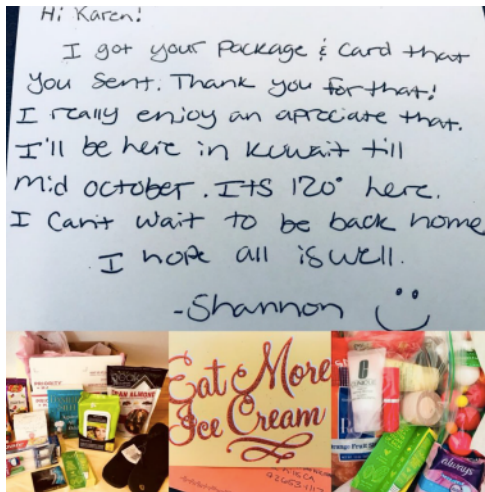 Hi Karen!
I got your package & card that
you sent. Thank you for that!
I really enjoy an apreciate that.
I'll be here in Kuwait till
mid october. Its 120° here.
I cant wait to be back home
I hope all is well.
-Shannon
Eat More
Ice Cream
CLINIQUE
always